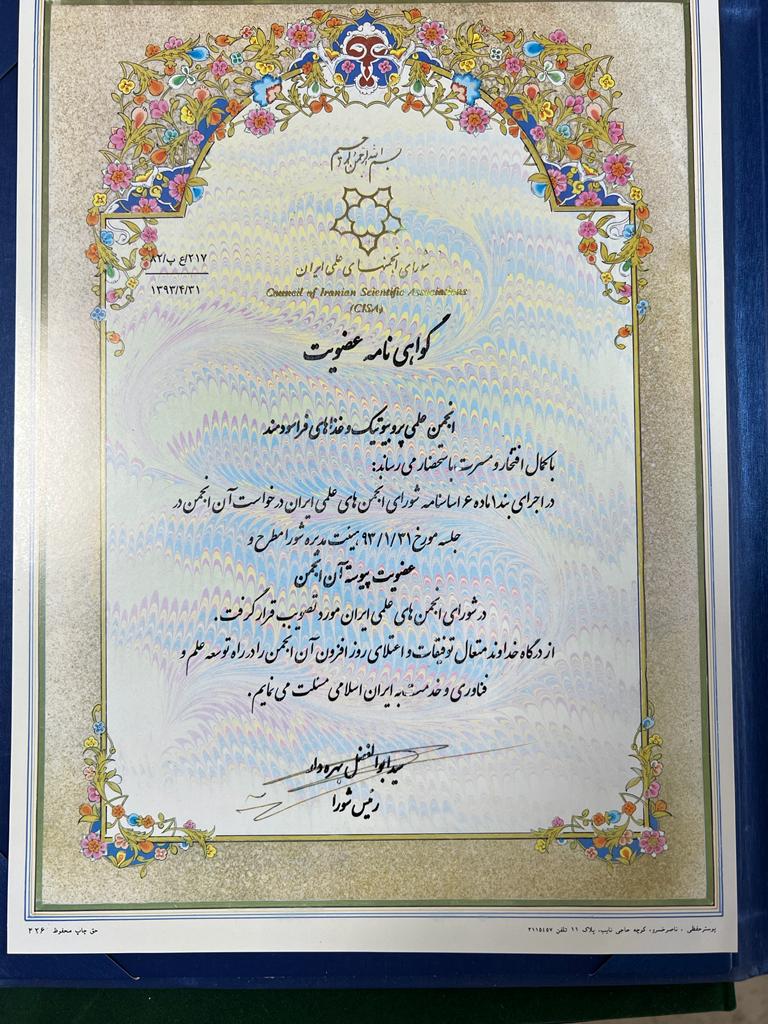 بسم الله الرحمن الرحیم
شورای انجمنهای علمی ایران
Council of Iranian Scientific Associations
(CISA)
۲۱۷/ع پ/۸۲
۱۳۹۳/۴/۳۱
گواهی نامه عضویت
انجمن علمی پروبیوتیک و غذاهای فراسودمند
با کمال افتخار و مسرت باستحضار می رساند:
در اجرای بند ۱ ماده ۶ اساسنامه شورای انجمن های علمی ایران درخواست آن انجمن در
جلسه مورخ ۹۳/۱/۳۱ هیئت مدیره شورا مطرح و
عضویت پیوسته آن انجمن
در شورای انجمن های علمی ایران مورد تصویب قرار گرفت.
از درگاه خداوند متعال توفیقات و اعتلای روز افزون آن انجمن را در راه توسعه علم و
فناوری و خدمت به ایران اسلامی مسئلت می نمایم.
سید ابوالفضل بهره دار
رئیس شورا
پوسترحفظی ، ناصرخسرو، کوچه حاجی نایب، پلاک ۱۱ تلفن ۳۱۱۵۴۵۷
حق چاپ محفوظ ۴۲۶